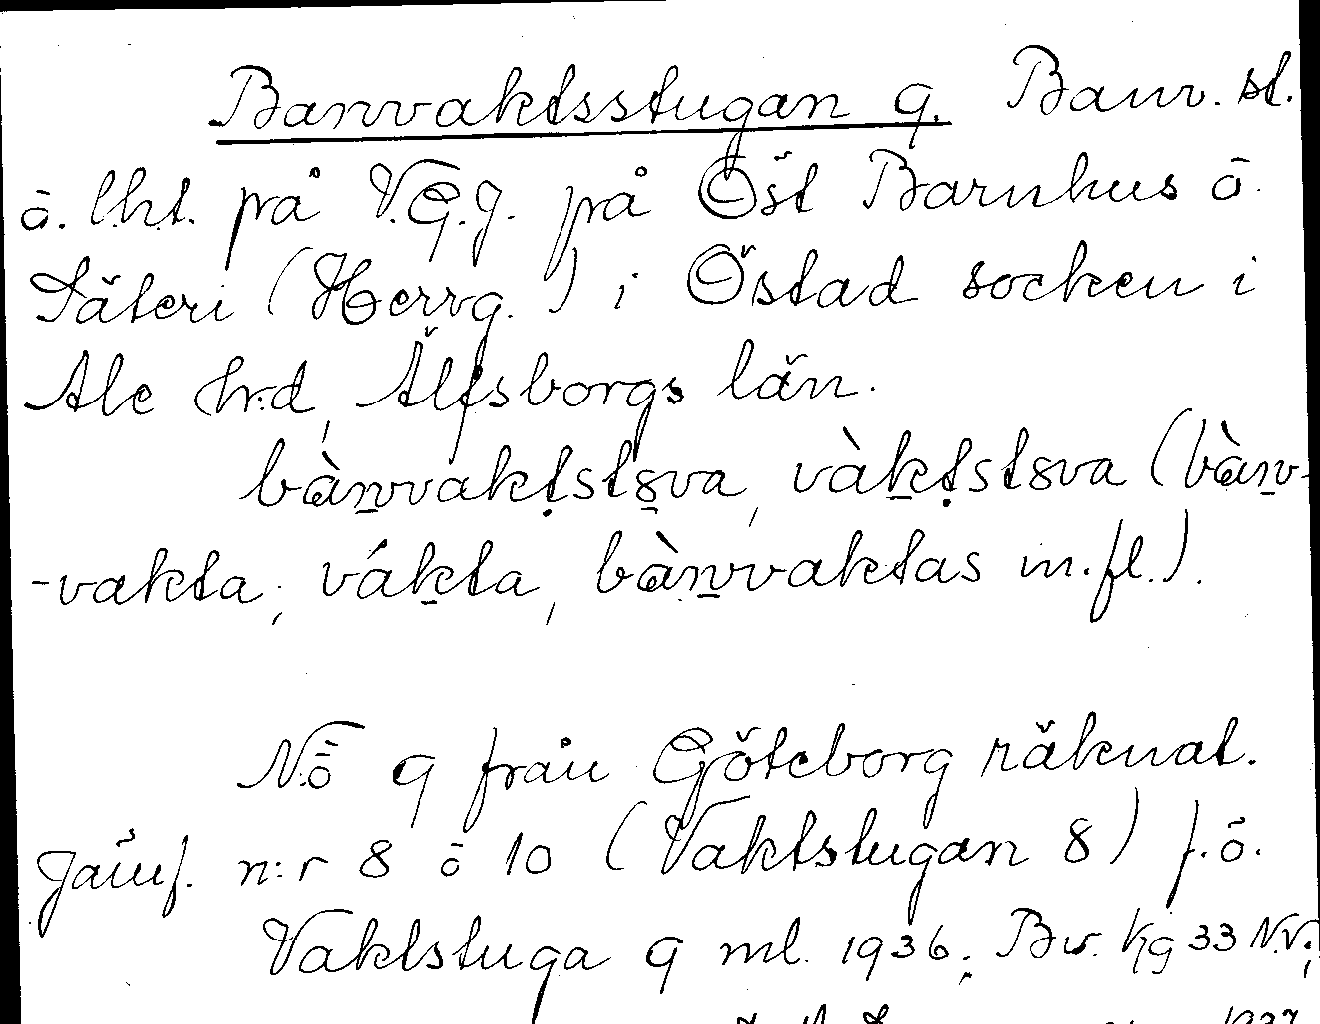 Banvaktsstugan 9. Banv. st.
ō. lht. på V.G.J. på Öst Barnhus ō.
Säteri (Herrg.) i Östad socken i
Ale hrd, Älfsborgs län.
bànvaktstȣva, vàktstȣva (bànv-
-vakta; vákta, bànvvaktas m.fl.).
N:ō 9 från Göteborg räknat.
Jämf. n:r 8 ō 10 (Vaktstugan 8) f.ō.
Vaktstuga 9 ml. 1936; Bv. Kg 33 N.V.;
1937